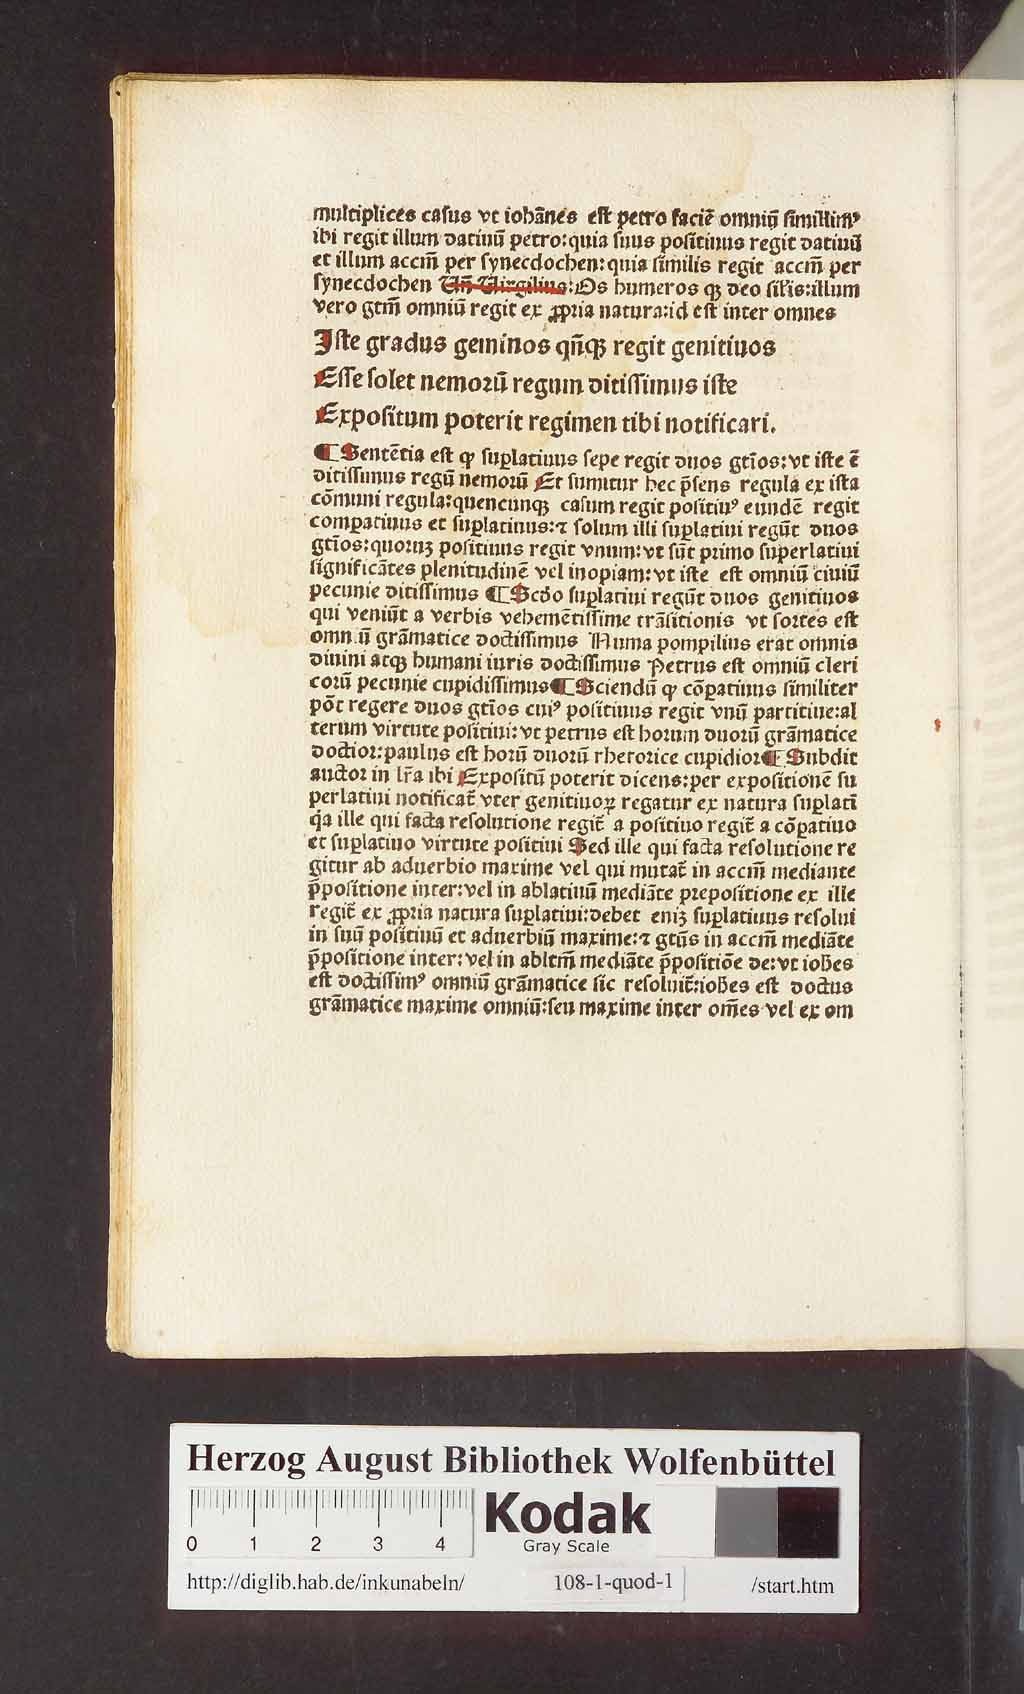 multiplices casus vt iohãnes est petro faciẽ omniũ simillimꝰ
ibi regit illum datiuũ petro:quia suus positiuus regit datiuũ
et illum accm̃ per synecdochen:quia similis regit accm̃ per
synecdochen Uñ Uirgilius:Os humeros qꝫ deo sil̃is:illum
vero gtm̃ omniũ regit ex ꝓpria natura:id est inter omnes
Iste gradus geminos qñqꝫ regit genitiuos
Esse solet nemorũ regum ditissimus iste
Expositum poterit regimen tibi notificari.
¶ Sentẽtia est ꝙ suꝑlatiuus sepe regit duos gtĩos:vt iste ẽ
ditissimus regũ nemorũ Et sumitur hec p̃sens regula ex ista
cõmuni regula:quencunqꝫ casum regit positiuꝰ eundẽ regit
comꝑatiuus et suꝑlatiuus:⁊ solum illi suꝑlatiui regũt duos
gtĩos:quoruꝫ positiuus regit vnum:vt sũt primo superlatiui
significãtes plenitudinẽ vel inopiam:vt iste est omniũ ciuiũ
pecunie ditissimus ¶ Scdo suꝑlatiui regũt duos genitiuos
qui veniũt a verbis vehemẽtissime trãsitionis vt sortes est
omniũ grãmatice doctissimus Numa pompilius erat omnis
diuini atqꝫ humani iuris doctissimus Petrus est omniũ cleri
corũ pecunie cupidissimus ¶ Sciendũ ꝙ cõꝑatiuus similiter
põt regere duos gtĩos cuiꝰ positiuus regit vnũ partitiue:al
terum virtute positiui:vt petrus est horum duorũ grãmatice
doctior:paulus est horũ duorũ rhetorice cupidior ¶ Subdit
auctor in lr̃a ibi Expositũ poterit dicens:per expositionẽ su
perlatiui notificat̃ vter genitiuoꝝ regatur ex natura suꝑlati
q̃a ille qui facta resolutione regit̃ a positiuo regit̃ a cõꝑatiuo
et suꝑlatiuo virtute positiui Sed ille qui facta resolutione re
gitur ab aduerbio maxime vel qui mutat̃ in accm̃ mediante
p̃positione inter:vel in ablatiuũ mediãte prepositione ex ille
regit̃ ex ꝓpria natura suꝑlatiui:debet eniꝫ suꝑlatiuus resolui
in suũ positiuũ et aduerbiũ maxime:⁊ gtũs in accm̃ mediãte
p̃positione inter:vel in abltm̃ mediãte p̃positiõe de:vt ioh̃es
est doctissimꝰ omniũ grãmatice sic resoluit̃:ioh̃es est doctus
grãmatice maxime omniũ:seu maxime inter om̃es vel ex om
Herzog August Bibliothek Wolfenbüttel
0 1 2 3 4
Kodak
Gray Scale
http://diglib.hab.de/inkunabeln/ 108-1-quod-1 /start.htm